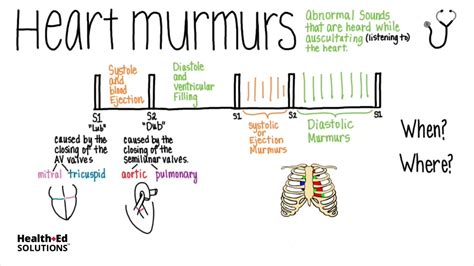 Heart murmurs
Abnormal Sounds
that are heard while
auscultating (listening to)
the heart.
Systole
and
blood
Ejection
Diastole
and
ventricular
Filling
S1
"Lub"
S2
"Dub"
S1
S2
S1
caused by the
closing of the
AV valves
mitral tricuspid
caused by the
closing of the
semilunar valves.
aortic pulmonary
systolic
or
Ejection
Murmurs
Diastolic
Murmurs
When?
Where?
Health+Ed
SOLUTIONS™